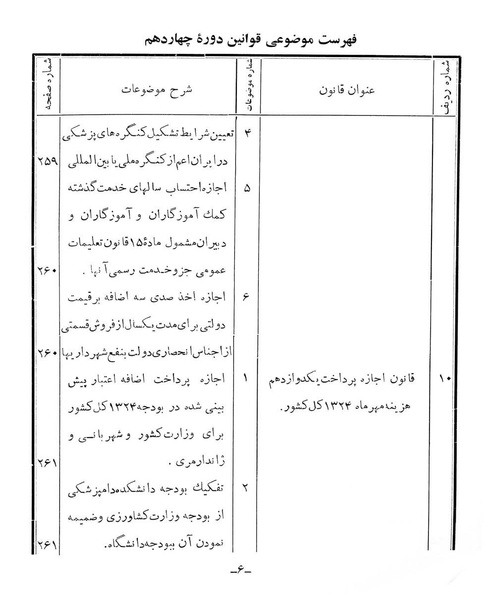 فهرست موضوعی قوانین دورهٔ چهاردهم
شماره ردیف
عنوان قانون
شماره موضوعات
شرح موضوعات
شماره صفحه
۴
تعیین شرایط تشکیل کنگره‌های پزشکی
در ایران اعم از کنگره ملی یا بین المللی
۲۵۹
۵
اجازه احتساب سالهای خدمت گذشته
کمك آموزگاران و آموزگاران و
دبیران مشمول مادهٔ ۱۵ قانون تعلیمات
عمومی جزو خدمت رسمی آنها .
۲۶۰
۶
اجازه اخذ صدی سه اضافه بر قیمت
دولتی برای مدت یکسال از فروش قسمتی
از اجناس انحصاری دولت بنفع شهرداریها
۲۶۰
۱۰
قانون اجازه پرداخت یکدوازدهم
هزینه مهر ماه ۱۳۲۴ کل کشور.
۱
اجازه پرداخت اضافه اعتبار پیش
بینی شده در بودجه ۱۳۲۴ کل کشور
برای وزارت کشور و شهربانی و
ژاندارمری .
۲۶۱
۲
تفکیك بودجه دانشکده دامپزشکی
از بودجه وزارت کشاورزی وضمیمه
نمودن آن ببودجه دانشگاه.
۲۶۱
ـ۶ـ